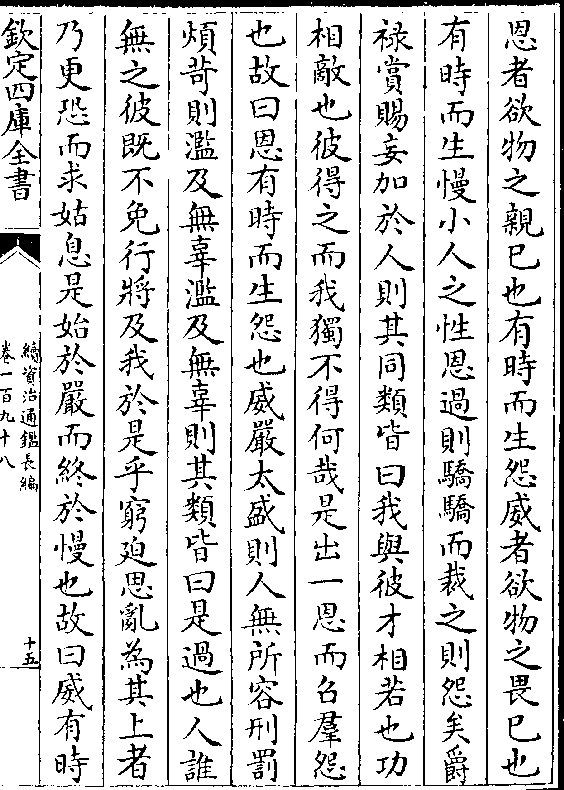 恩者欲物之親已也有時而生怨威者欲物之畏已也
有時而生慢小人之性恩過則驕驕而裁之則怨矣爵
禄賞賜妄加於人則其同類皆曰我與彼才相若也功
相敵也彼得之而我獨不得何哉是出一恩而召羣怨
也故曰恩有時而生怨也威嚴太盛則人無所容刑罰
煩苛則濫及無辜濫及無辜則其類皆曰是過也人誰
無之彼既不免行將及我於是乎窮迫思亂為其上者
乃更恐而求姑息是始於嚴而終於慢也故曰威有時
欽定四庫全書
續資治通鑑長編
卷一百九十八
十五